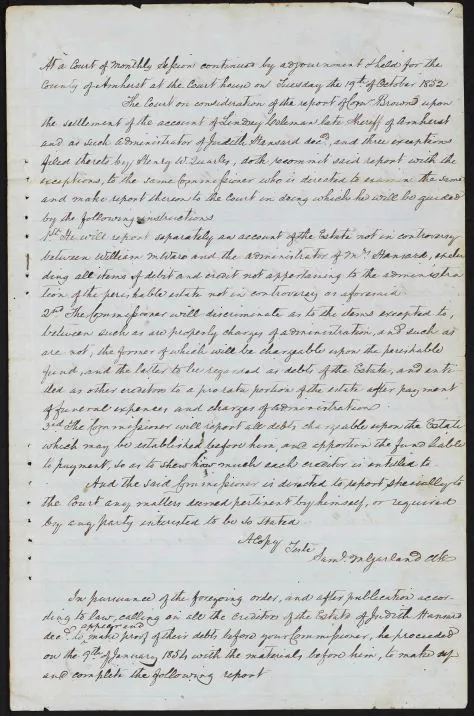 1
At a Court of monthly Session continued by adjournment & held for the
County of Amherst at the Court house on Tuesday the 19th of October 1852
The Court on consideration of the report of Comr Brown upon
the settlement of the account of Lindsey Coleman late Sheriff of Amherst
and as such administrator of Judith Hansard decd, and three exceptions
filed thereto by Henry W. Quarles, doth recommit said report with the
exceptions, to the same Commissioner who is directed to examine the same
and make report thereon to the Court in doing which he will be guided
by the following instructions
1st He will report separately an account of the Estate not in controversy
between William M Ware and the administrator of Mrs Hansard, exclu
ding all items of debit and credit not appertaining to the administra
tion of the perishable estate not in controversy as aforesaid
2nd The Commissioner will discriminate as to the items excepted to,
between such as are properly charges of administration, and such as
are not, the former of which will be chargeable upon the perishable
fund, and the latter to be regarded as debts of the Estate, and enti
tled as other creditors to a pro rata portion of the estate after payment
of funeral expences and charges of administration
3rd The Commissioner will report all debts chargeable upon the Estate
which may be established before him, and apportion the fund liable
to payment, so as to shew how much each creditor is entitled to
And the said Commissioner is directed to report specially to
the Court any matters deemed pertinent by himself, or required
by any party interested to be so stated
A Copy Teste
Saml. M Garland Clk
In pursuance of the foregoing order, and after publication accor-
ding to law, calling on all the creditors of the Estate of Judith Hansard
decd. to make proof of their debts before your Commissioner, he proceeded
on the 9th of January 1854 with the materials before him, to make up
and complete the following report